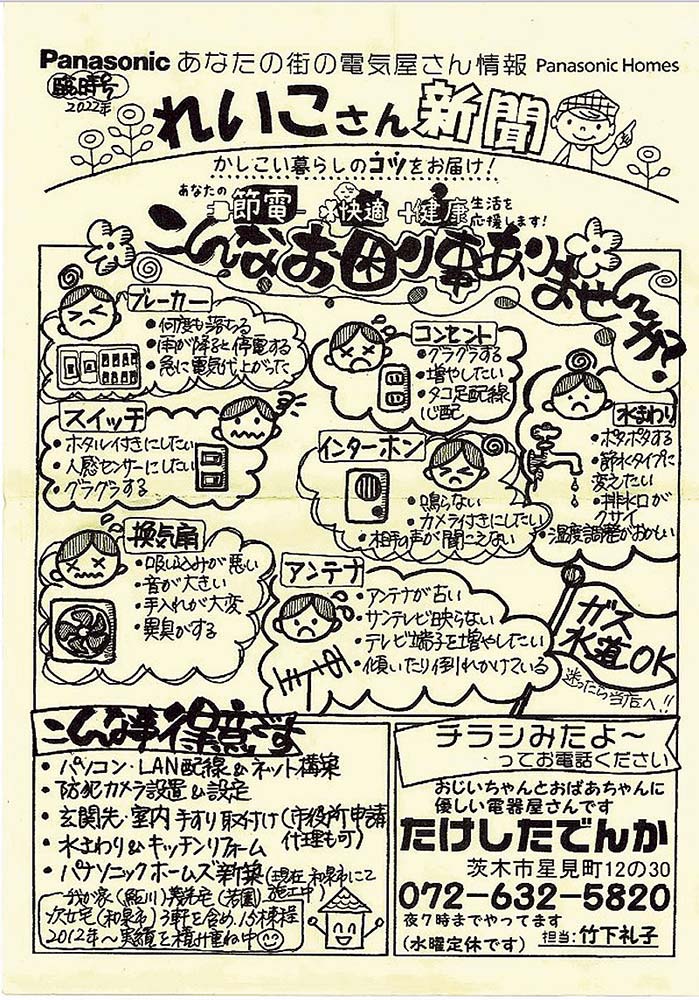 Panasonic あなたの街の電気屋さん情報 Panasonic Homes
臨時号
2022年
れいこさん新聞
かしこい暮らしのコツをお届け!
あなたの 節電 快適 +健康 生活を応援します!
こんなお困り事ありませんか?
ブレーカー
・何度も落ちる
・雨が降ると停電する
・急に電気代上がった
コンセント
・グラグラする
・増やしたい
・タコ足配線
心配
スイッチ
・ホタル付きにしたい
・人感センサーにしたい
・グラグラする
インターホン
・鳴らない
・カメラ付きにしたい
・相手の声が聞こえない
水まわり
・ポタポタする
・節水タイプに
変えたい
・排水口が
クサイ
・温度調整がおかしい
換気扇
・吸い込みが悪い
・音が大きい
・手入れが大変
・異臭がする
アンテナ
・アンテナが古い
・サンテレビ映らない
・テレビ端子を増やしたい
・傾いたり倒れかけている
ガス
水道OK
迷ったら当店へ!!
こんな事得意です
・パソコン・LAN配線&ネット構築
・防犯カメラ設置&設定
・玄関先・室内手すり取付け(市役所申請
代理も可)
・水まわり&キッチンリフォーム
・パナソニックホームズ新築(現在和泉市にて
施工中)
我が家(鮎川)義宅(若園)
次在宅(和泉市)3軒を含め、15棟程
2012年~実績を積み重ね中
チラシみたよ~
ってお電話ください
おじいちゃんとおばあちゃんに
優しい電器屋さんです
たけしたでんか
茨木市星見町12の30
072-632-5820
夜7時までやってます
(水曜定休です) 担当:竹下礼子